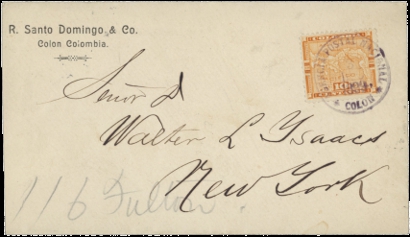 R. Santo Domingo & Co.
Colon Colombia.
COLON
Señor D
Walter L Isaacs
New York
116 Fulton